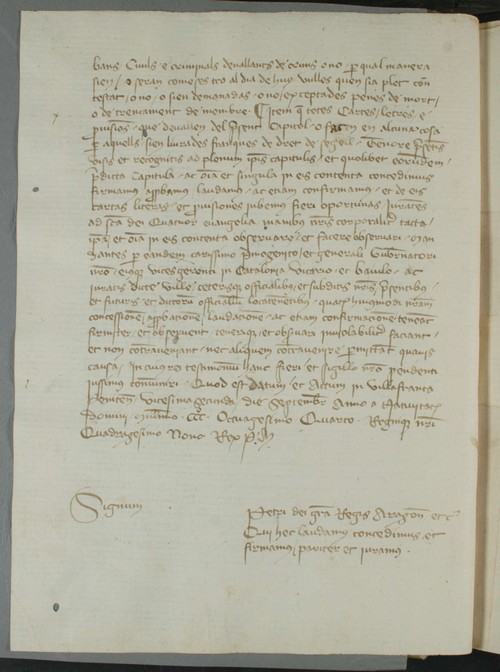 bans Civils e criminals devallants de crims o no . per qual manera
sien / o seran comeses tro al dia de huy vulles quen sia plet con
testat . o no . o sien demanadas . o no / exceptades penes de mort /
o de trencament de membre . Item q totes Cartes / letres . e
provisions . que devallen del present Capitol . o facen en alcuna cosa
per aquells sien liurades franques de dret de segell . Tenore presentis
visis et recognitis ad plenum ipsis capitulis / et quolibet eorumdem .
predicta Capitula . ac omnia et singula in eis contenta concedimus
firmamus approbamus laudamus . ac etiam confirmamus . et de eis
cartas literas . et provisiones iubemus fieri oportunas Iurantes
ad sancta dei Quatuor evangelia manibus nostris corporaliter tacta .
ipsa et omnia in eis contenta observare . et facere observari . Man
dantes per eandem carissimo primogenito . et generali Gubernatori
nostro . eiusque vices gerenti in Catalonia vicario . et baiulo . ac
iuratis dicte ville . ceterisque officialibus . et subditis nostris presentibus .
et futuris . et dictorum officialium locatenentibus . quatenus huiusmodi nostram
concessionem approbationem laudatione . ac etiam confirmatione . teneant
firmiter . et observent . tenerique . et observari inviolabiliter faciant .
et non contraveniant . nec aliquem contravenire permittant quavis
causa / In cuius rei testimonium hanc fieri et sigillo nostro pendenti
iussimus comuniri . Quod est datum et Actum in Villafranca
Peniten . Vicesima secunda die Septembr Anno a Nativitate
Domini Millesimo . CCC . Octuagesimo Quarto . Regnique nostri
Quadragesimo Nono Rex P.
Signum
Petri dei gra Regis Aragon et c
Qui hec laudamus concedimus . et
firmamus / pariter et iuramus .